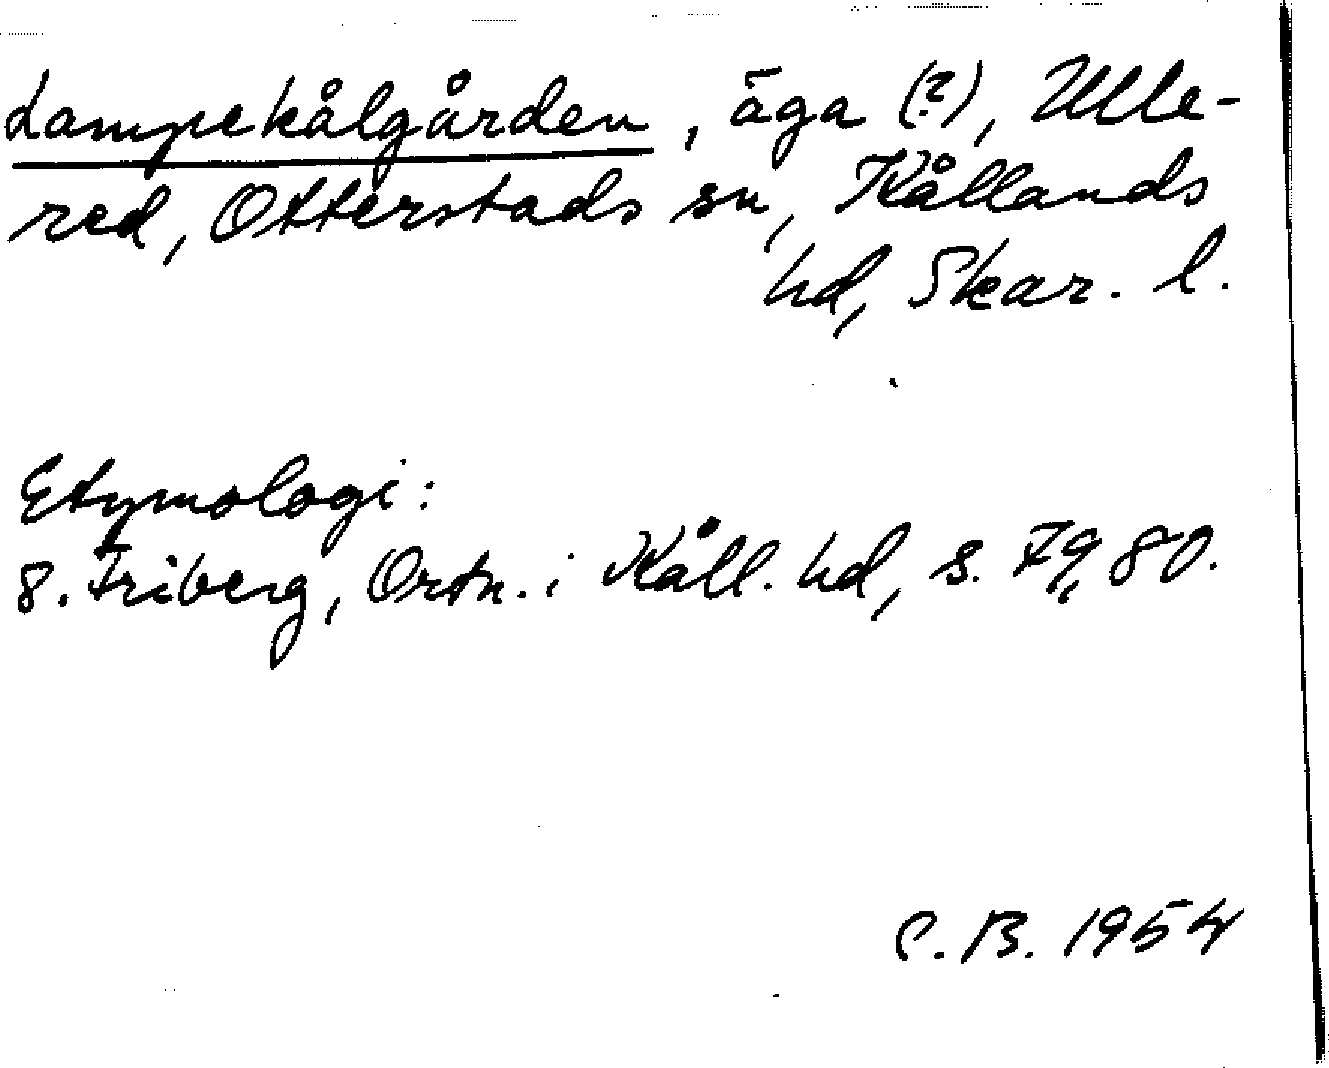 Lampekålgården, äga (?), Ulle-
red, Otterstads sn, Kållands
hd, Skar. l.
Etymologi:
S. Friberg, Ortn. i Kåll. hd, s. 79, 80.
C.B. 1954